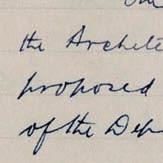 the Archite
proposed
of the Dep